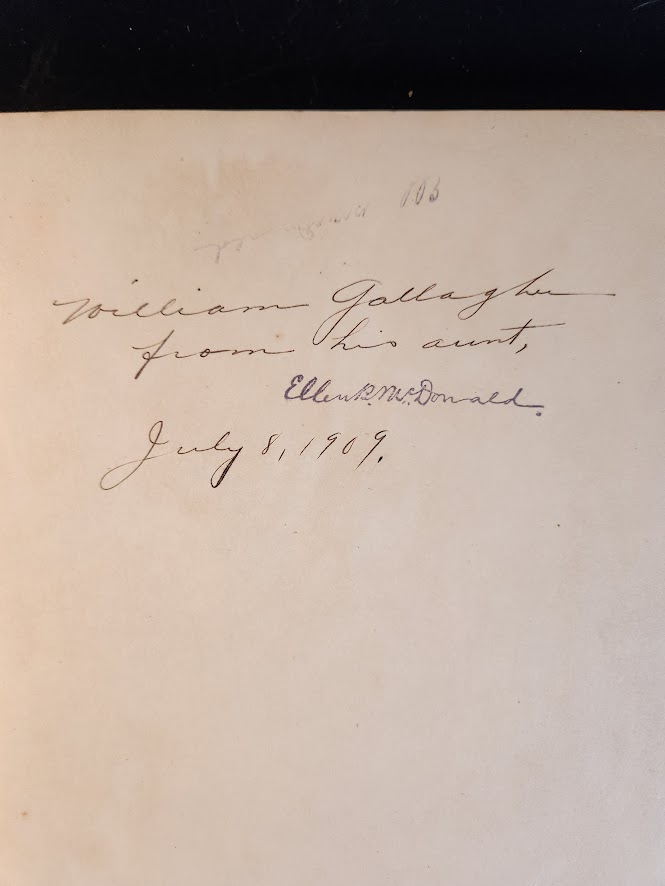 William Gallagher
from his aunt,
Ellen P. McDonald.
July 8, 1909.